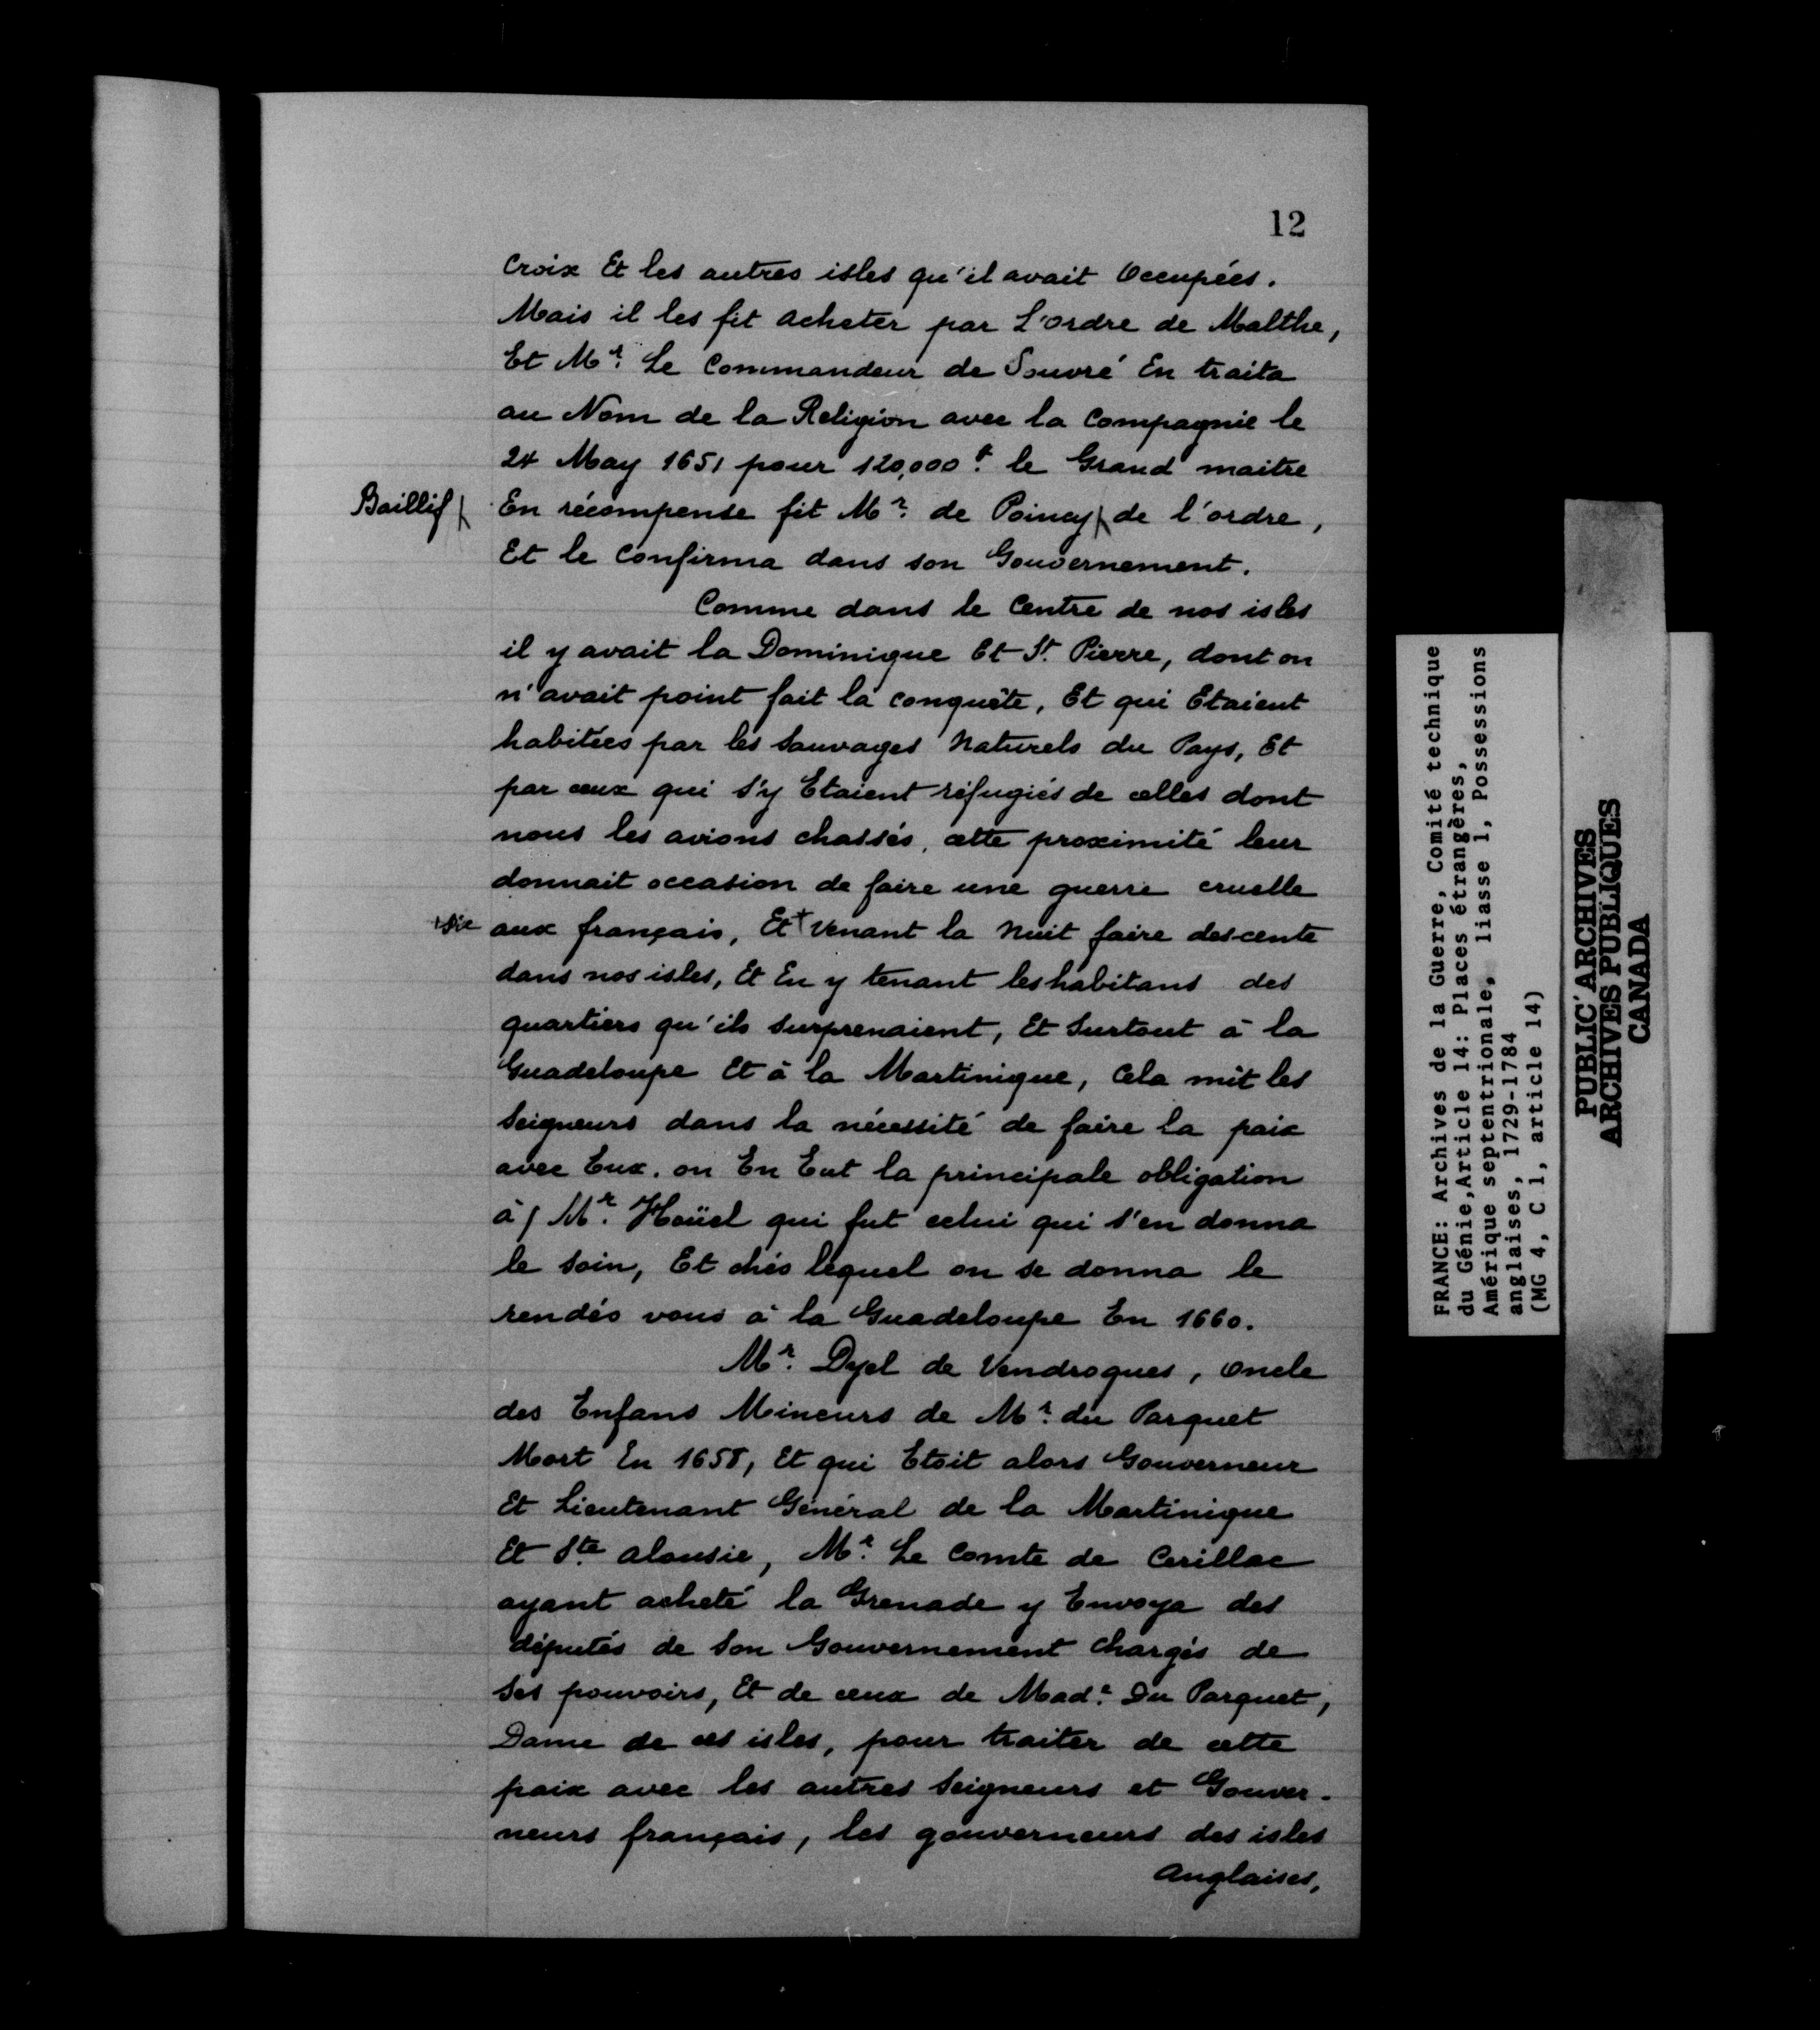 12
Croix Et les autres isles qu'il avait Occupées.
Mais il les fit acheter par L'ordre de Malthe,
Et Mr. Le Commandeur de Souvré En traita
au Nom de la Religion avec la Compagnie le
24 May 1651 pour 120,000 le Grand maitre
Baillif En récompense fit Mr. de Poincy de l'ordre,
Et le Confirma dans son Gouvernement.
Comme dans le Centre de nos isles
il y avait la Dominique Et St. Pierre, dont on
n'avait point fait la conquête, Et qui Etaient
habitées par les Sauvages Naturels du Pays, Et
par ceux qui s'y Etaient réfugiés de celles dont
nous les avions chassés, cette proximité leur
donnait occasion de faire une guerre cruelle
+ Sic aux français, Et + Venant la Nuit faire descente
dans nos isles, Et En y tenant les habitans des
quartiers qu'ils Surprenaient, Et Surtout à la
Guadeloupe Et à la Martinique, Cela mit les
Seigneurs dans la nécessité de faire la paix
avec Eux. on En Eut la principale obligation
à Mr. Hoüel qui fut celui qui s'en donna
le Soin, Et chés lequel on se donna le
rendés vous à la Guadeloupe En 1660.
Mr. Dyel de Vendroques, Oncle
des Enfans Mineurs de Mr. du Parquet
Mort En 1658, Et qui Etoit alors Gouverneur
Et Lieutenant Général de la Martinique
Et Ste. Alousie, Mr. Le Comte de Cerillac
ayant acheté la Grenade y Envoya des
députés de Son Gouvernement Chargés de
Ses pouvoirs, Et de ceux de Made. Du Parquet,
Dame de ces isles, pour traiter de cette
paix avec les autres Seigneurs et Gouver-
neurs français, les gouverneurs des isles
Anglaises,
FRANCE: Archives de la Guerre, Comité technique
du Génie, Article 14: Places étrangères,
Amérique septentrionale, liasse 1, Possessions
anglaises, 1729-1784
(MG 4, C 1, article 14)
PUBLIC ARCHIVES
ARCHIVES PUBLIQUES
CANADA